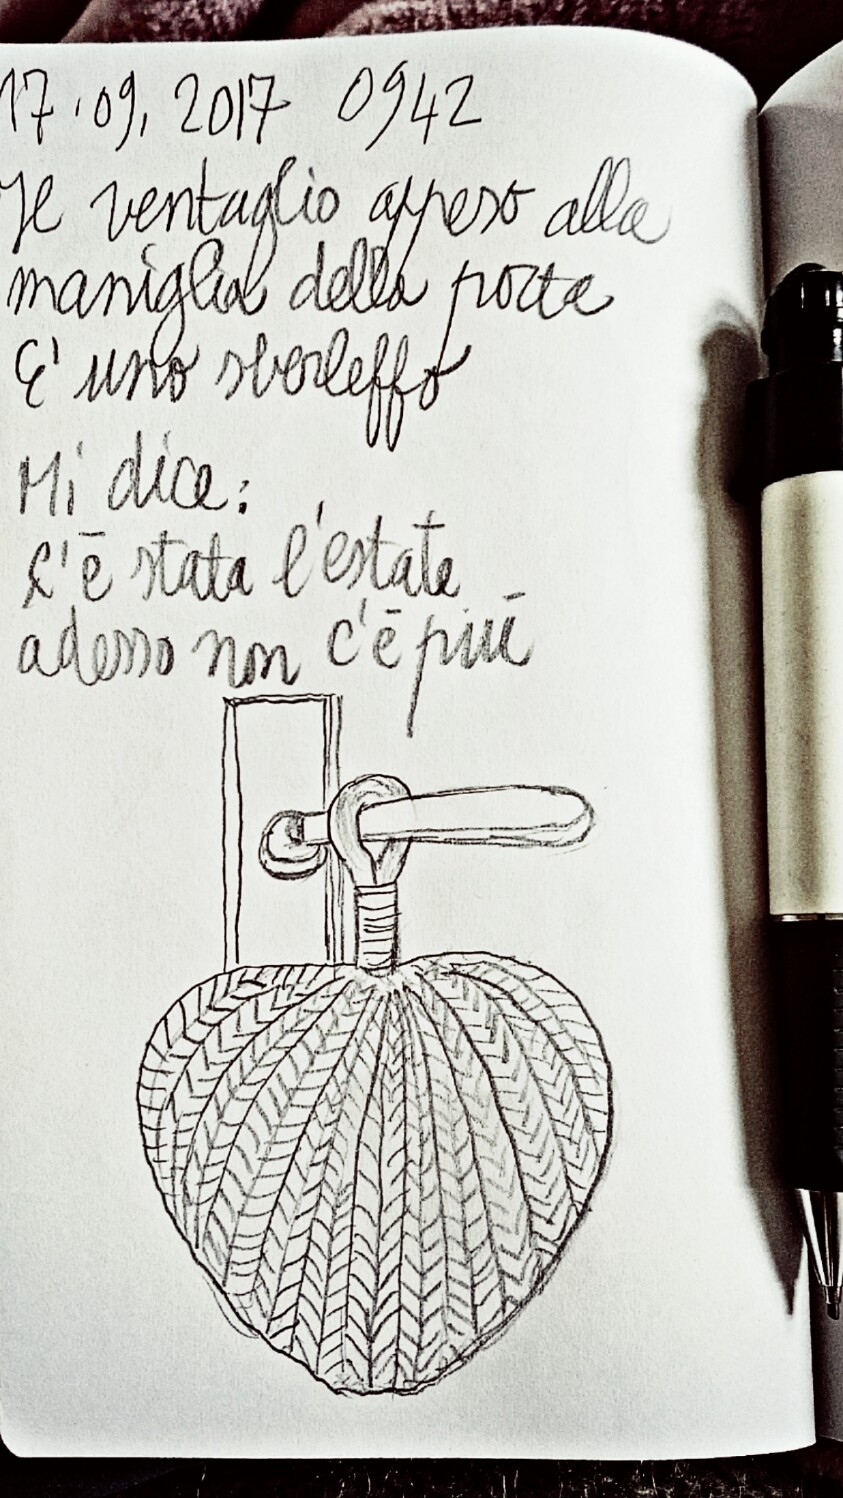 17.09.2017 0942
Il ventaglio appeso alla
maniglia della porta
E' uno sberleffo
Mi dice:
C'è stata l'estate
adesso non c'è più